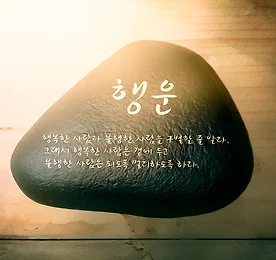 행운
행복한 사람과 불행한 사람을 구별할 줄 알라.
그래서 행복한 사람은 곁에 두고
불행한 사람은 되도록 멀리하도록 하라.